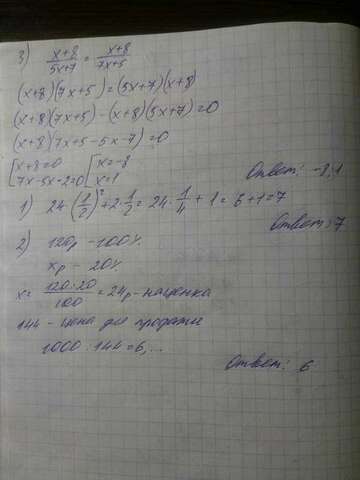 3) (x+8)/(5x+7) = (x+8)/(7x+5)
(x+8)(7x+5)=(5x+7)(x+8)
(x+8)(7x+5)-(x+8)(5x+7)=0
(x+8)(7x+5-5x-7)=0
[x+8=0 [x=-8
[7x-5x-2=0 [x=1
Ответ: -8;1
1) 24·(1/2)²+2·1/2=24·1/4+1=6+1=7
Ответ: 7
2) 120р - 100%
xр - 20%
x= 120·20/100 =24р-наценка
144 - цена для продажи
1000:144=6,...
Ответ: 6